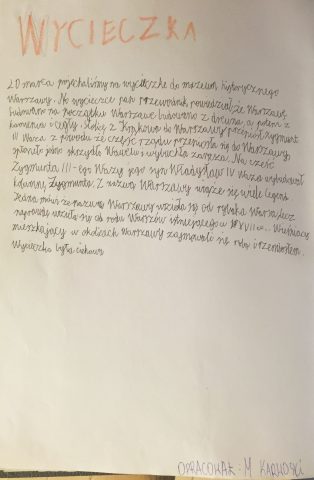 WYCIECZKA
20 marca pojechaliśmy na wycieczkę do muzeum historycznego
Warszawy. Na wycieczce pan przewodnik powiedział, że Warszawę
budowano na początku Warszawę budowano z drewna, a potem z
kamienia i cegły. Stolicę z Krakowa do Warszawy przeniósł Zygmunt
III Waza z powodu że część rządu przeniosła się do Warszawy
spłonęło jedno skrzydło Wawelu i wybuchła zaraza. Na cześć
Zygmunta III-ego Wazy jego syn Władysław IV Waza wybudował
kolumnę Zygmunta. Z nazwą Warszawy wiąże się wiele legend.
Jedna mówi że nazwa Warszawy wzięła się od rybaka Warsa, lecz
naprawdę wzięła się od rodu Warszów istniejącego w XVII w.
mieszkający w okolicach Warszawy zajmowali się rolą i rzemiosłem.
Wycieczka była ciekawa
OPRACOWAŁ: M KARNOSKI